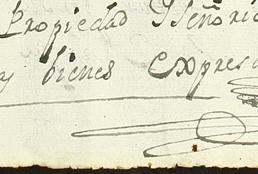 Propiedad Y Señorio
y bienes expresa